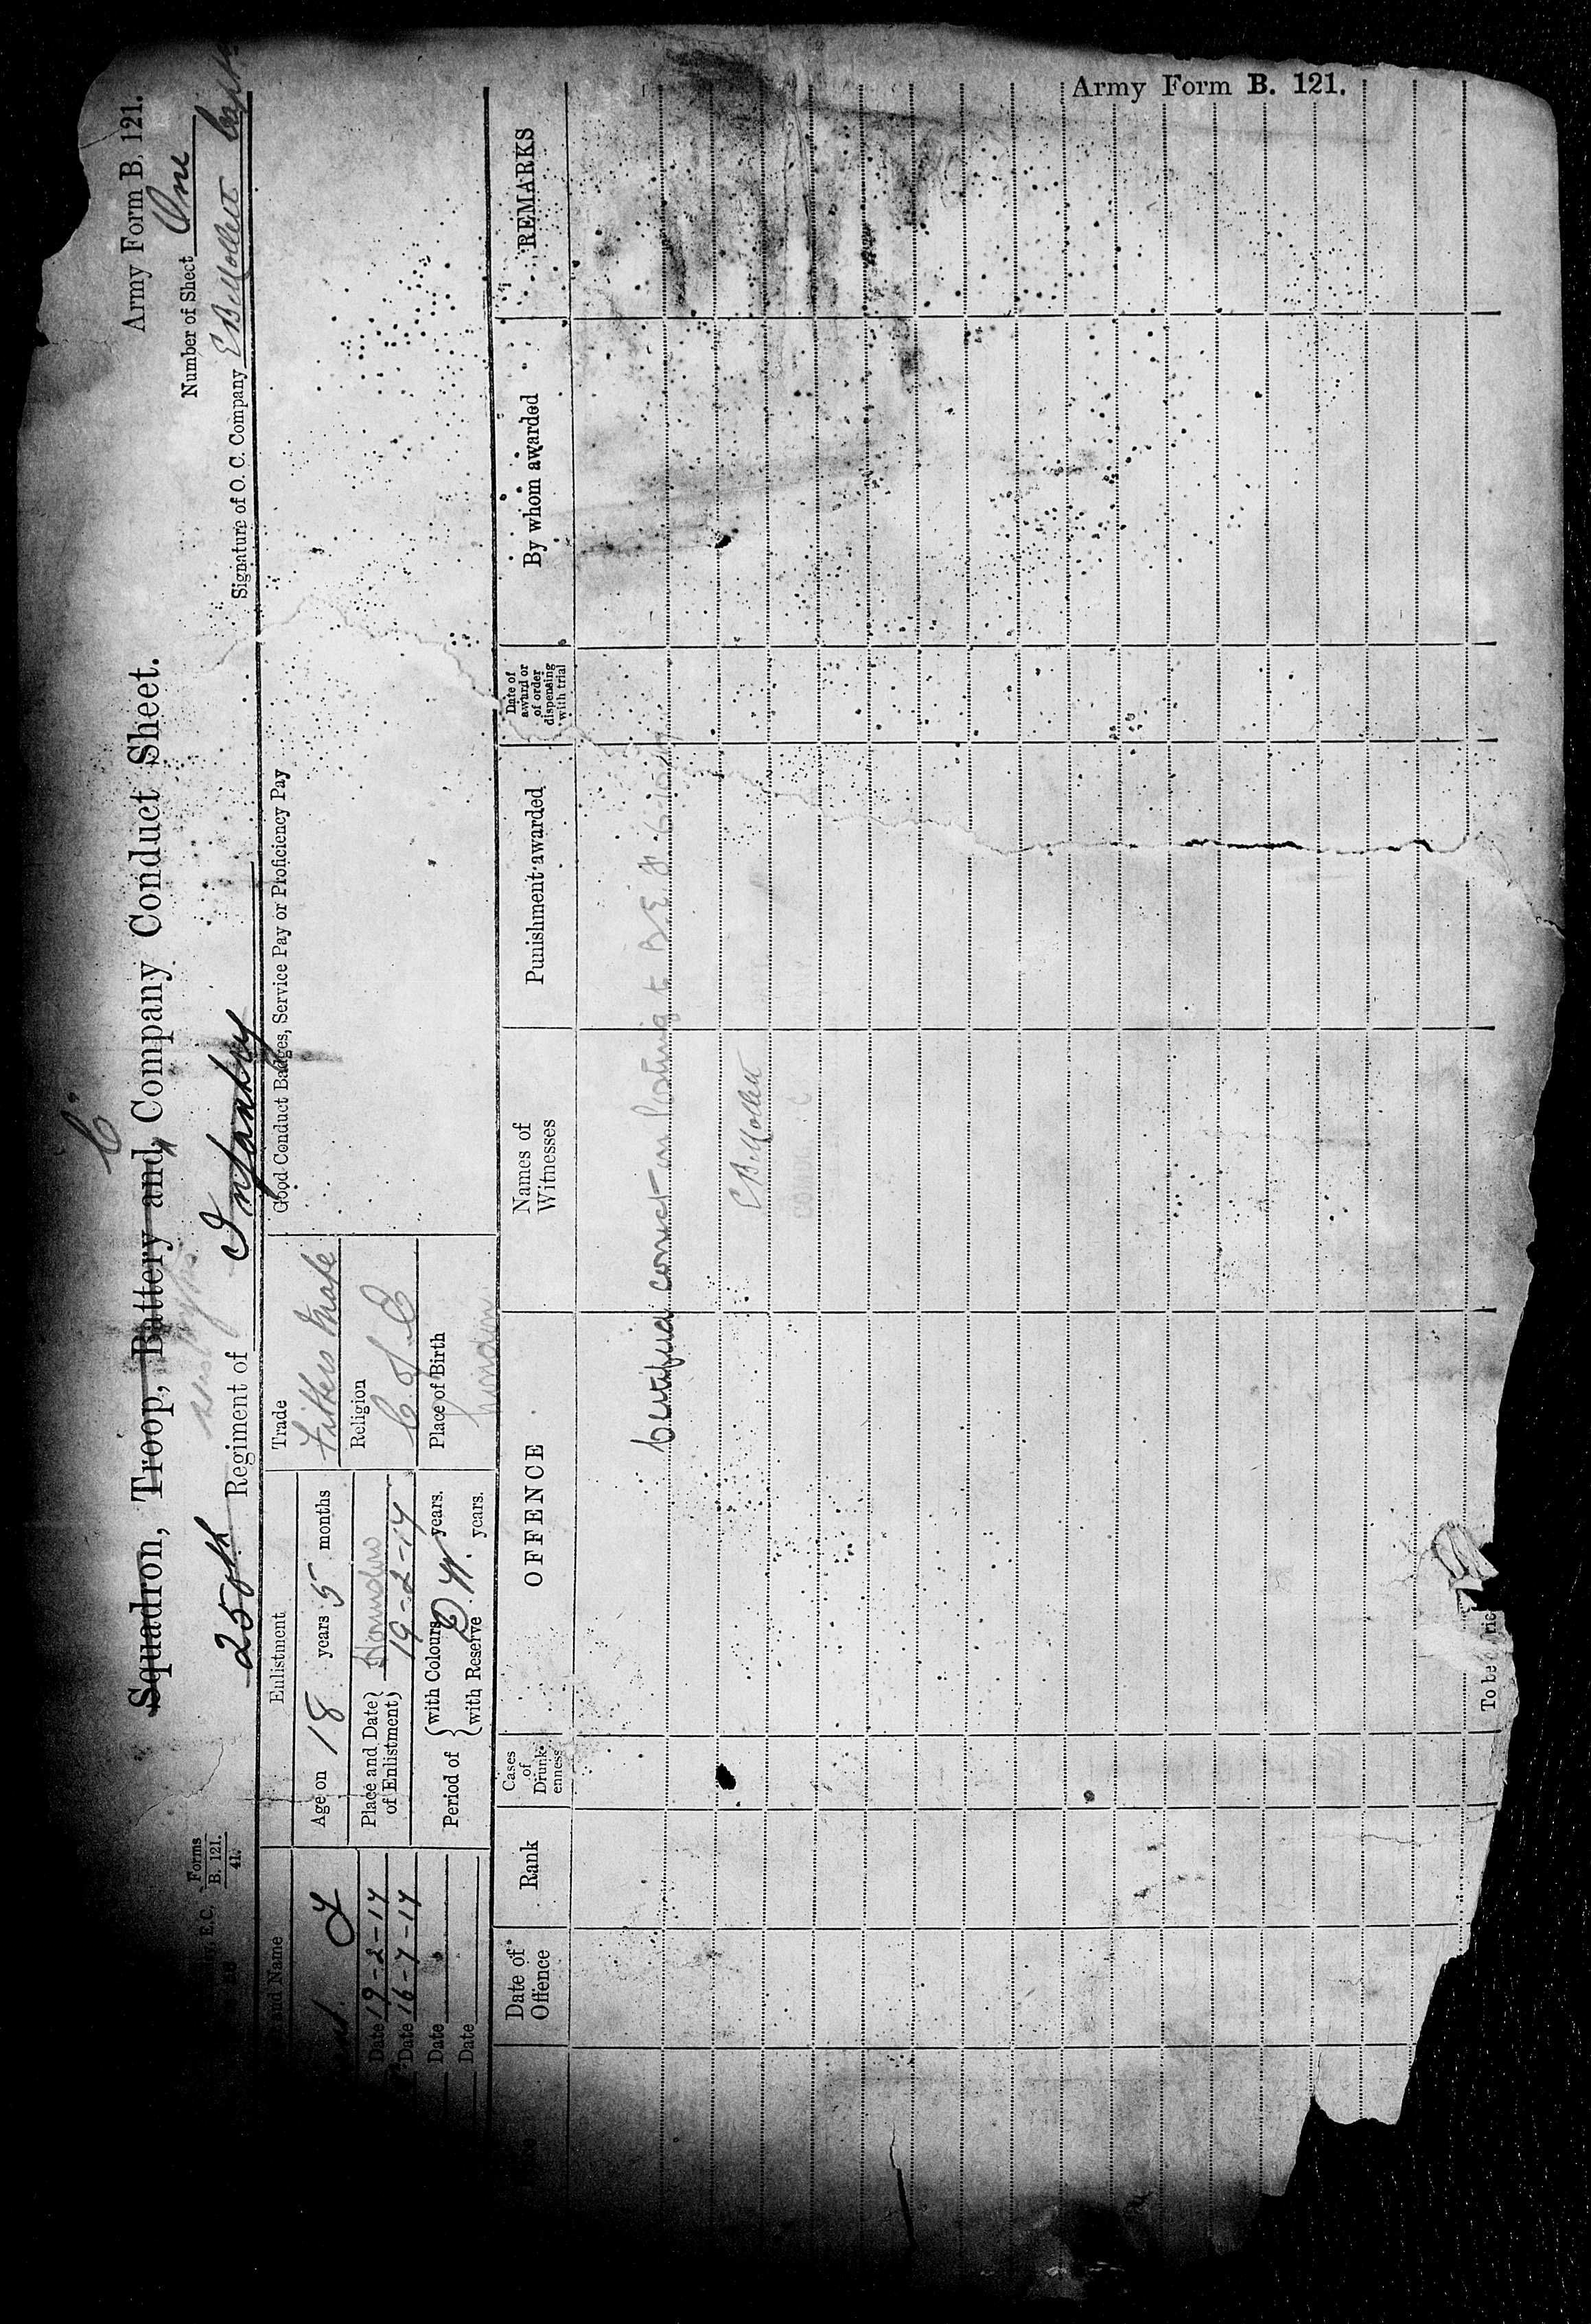 Army Form B. 121.
Army Form B. 121.
"C"
Squadron, Troop, Battery and Company Conduct Sheet.
Number of Sheet One
Forms
B. 121.
41.
E.C.
250th Regiment of Infantry
Signature of O. C. Company E B Mollett Capt
and Name
Enlistment
Trade
Good Conduct Badges, Service Pay or Proficiency Pay
Age on 18 years 5 months
Fitters Mate
Religion
C of E
Place and Date of Enlistment Hounslow
19-2-17
Date 19-2-17
Date 16-7-17
Date
Date
Place of Birth
London
Period of with Colours D. W. years.
with Reserve years.
Date of Offence
Rank
Cases of Drunkenness
OFFENCE
Names of Witnesses
Punishment awarded
Date of award or of order dispensing with trial
By whom awarded
REMARKS
Certified correct on Posting to B.E.F.
E B Mollett
To be